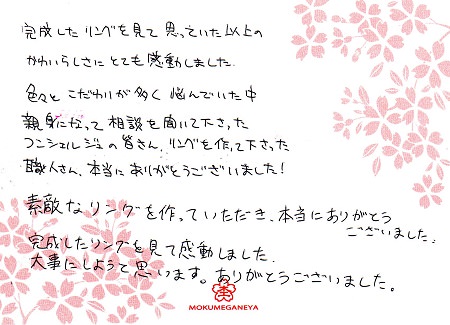 完成したリングを見て思っていた以上の
かわいらしさにとても感動しました.
色々とこだわりが多く悩んでいた中
親身になって相談を聞いて下さった
コンシェルジュの皆さん、リングを作って下さった
職人さん、本当にありがとうございました!
素敵なリングを作っていただき、本当にありがとう
ございました.
完成したリングを見て感動しました.
大事にしようと思います。ありがとうございました。
MOKUMEGANEYA